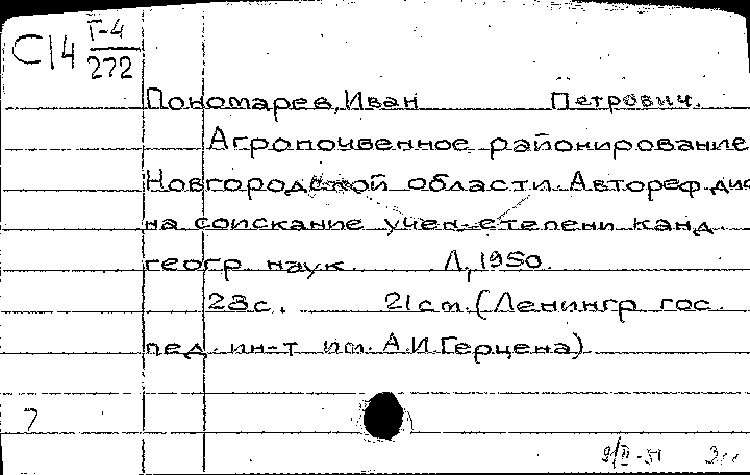 С14 Г-4
272
Пономарев, Иван Петрович.
Агропочвенное районирование
Новгородской области. Автореф. дис
на соискание учен. степени канд.
геогр. наук. Л, 1950.
23с. 21см. (Ленингр гос.
пед. ин-т им. А.И Герцена)
7
9/II-51